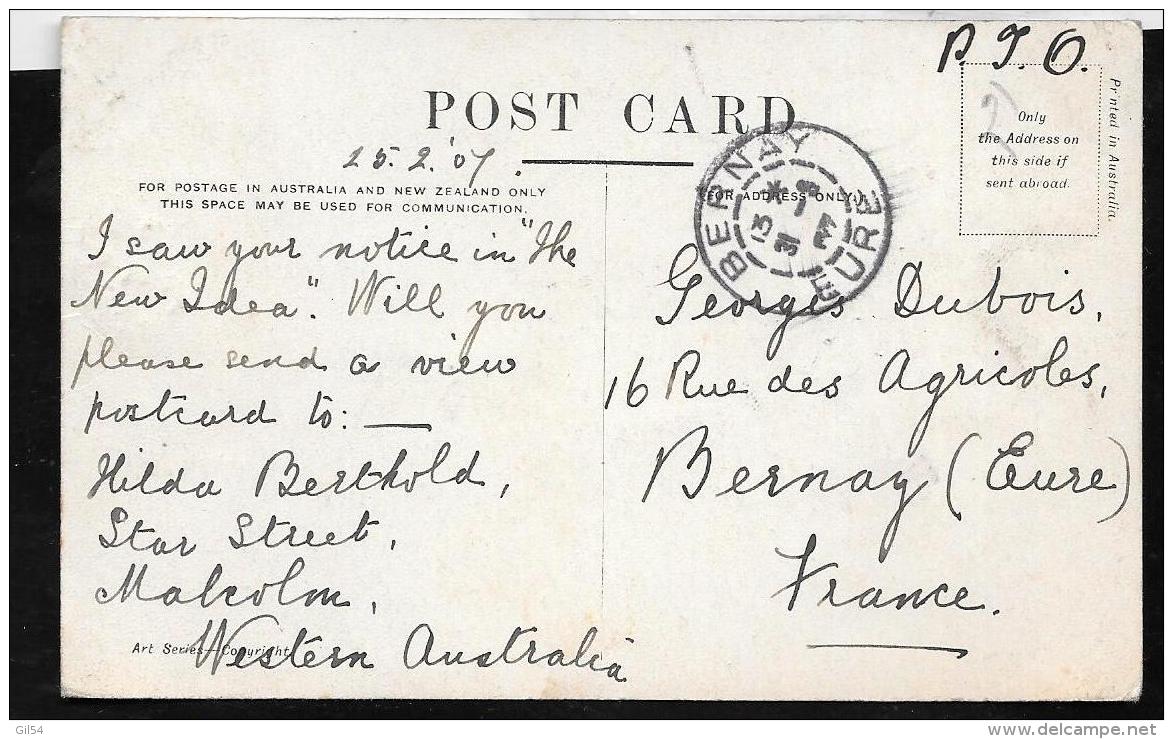 P.T.O.
POST CARD
25.2.'07.
FOR POSTAGE IN AUSTRALIA AND NEW ZEALAND ONLY
THIS SPACE MAY BE USED FOR COMMUNICATION.
I saw your notice in "The
New Idea". Will you
please send a view
postcard to: —
Hilda Berthold,
Star Street,
Malcolm,
Western Australia
Art Series—Copyright
(FOR ADDRESS ONLY.)
BERNAY
EURE
13
31
Georges Dubois,
16 Rue des Agricoles,
Bernay (Eure)
France.
Only
the Address on
this side if
sent abroad.
Printed in Australia.
Gil54
delcampe.net